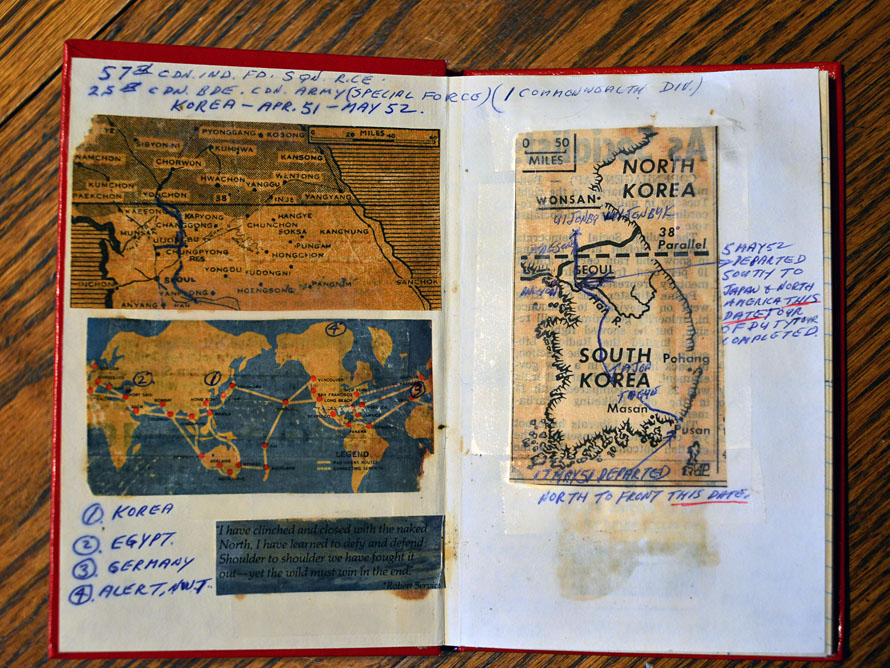 57th CDN. IND. FD. SQN. R.C.E.
25th CDN. BDE. CDN. ARMY (SPECIAL FORCE) (1 COMMONWOALTH DIV.)
KOREA - APR. 51 - MAY 52.
PYONGGANG KOSONG
SIBYON-NI KUMHWA
0 20 MILES 40
NAMCHON CHORWON KANSONG
HWACHON WENTONG
KUMCHON YANGGU
PAEKCHON YONCHON 38° INJE YANGYANG
KAESONG KAPYONG HANGYE
CHANGGONG CHUNCHON KANGNUNG
MUNSAN SOKSA
UIJONGBU PUNGAM
CHUNGPYONG RES HONGCHON
YONGDU YUDONGNI
SEOUL HOENGSONG PANGNIM
SANCHOK
ANYANG HAN
4
2 1 3
PORT SAID
VANCOUVER
SAN FRANCISCO
LONG BEACH
HONG KONG
PANAMA
LEGEND
1 KOREA
2 EGYPT.
3 GERMANY
4 ALERT, N.W.T.
I have clinched and closed with the naked
North, I have learned to defy and defend
Shoulder to shoulder we have fought it
out—yet the wild must win in the end.
Robert Service
0 50
MILES
NORTH
KOREA
WONSAN
38°
Parallel
SEOUL
Han
R.
SOUTH
KOREA
Pohang
TAJON
Masan
Pusan
5 MAY 52
DEPARTED
SOUTH TO
JAPAN & NORTH
AMERICA THIS
DATE TOUR
OF DUTY TOUR
COMPLETED.
17 MAY 51 DEPARTED
NORTH TO FRONT THIS DATE.